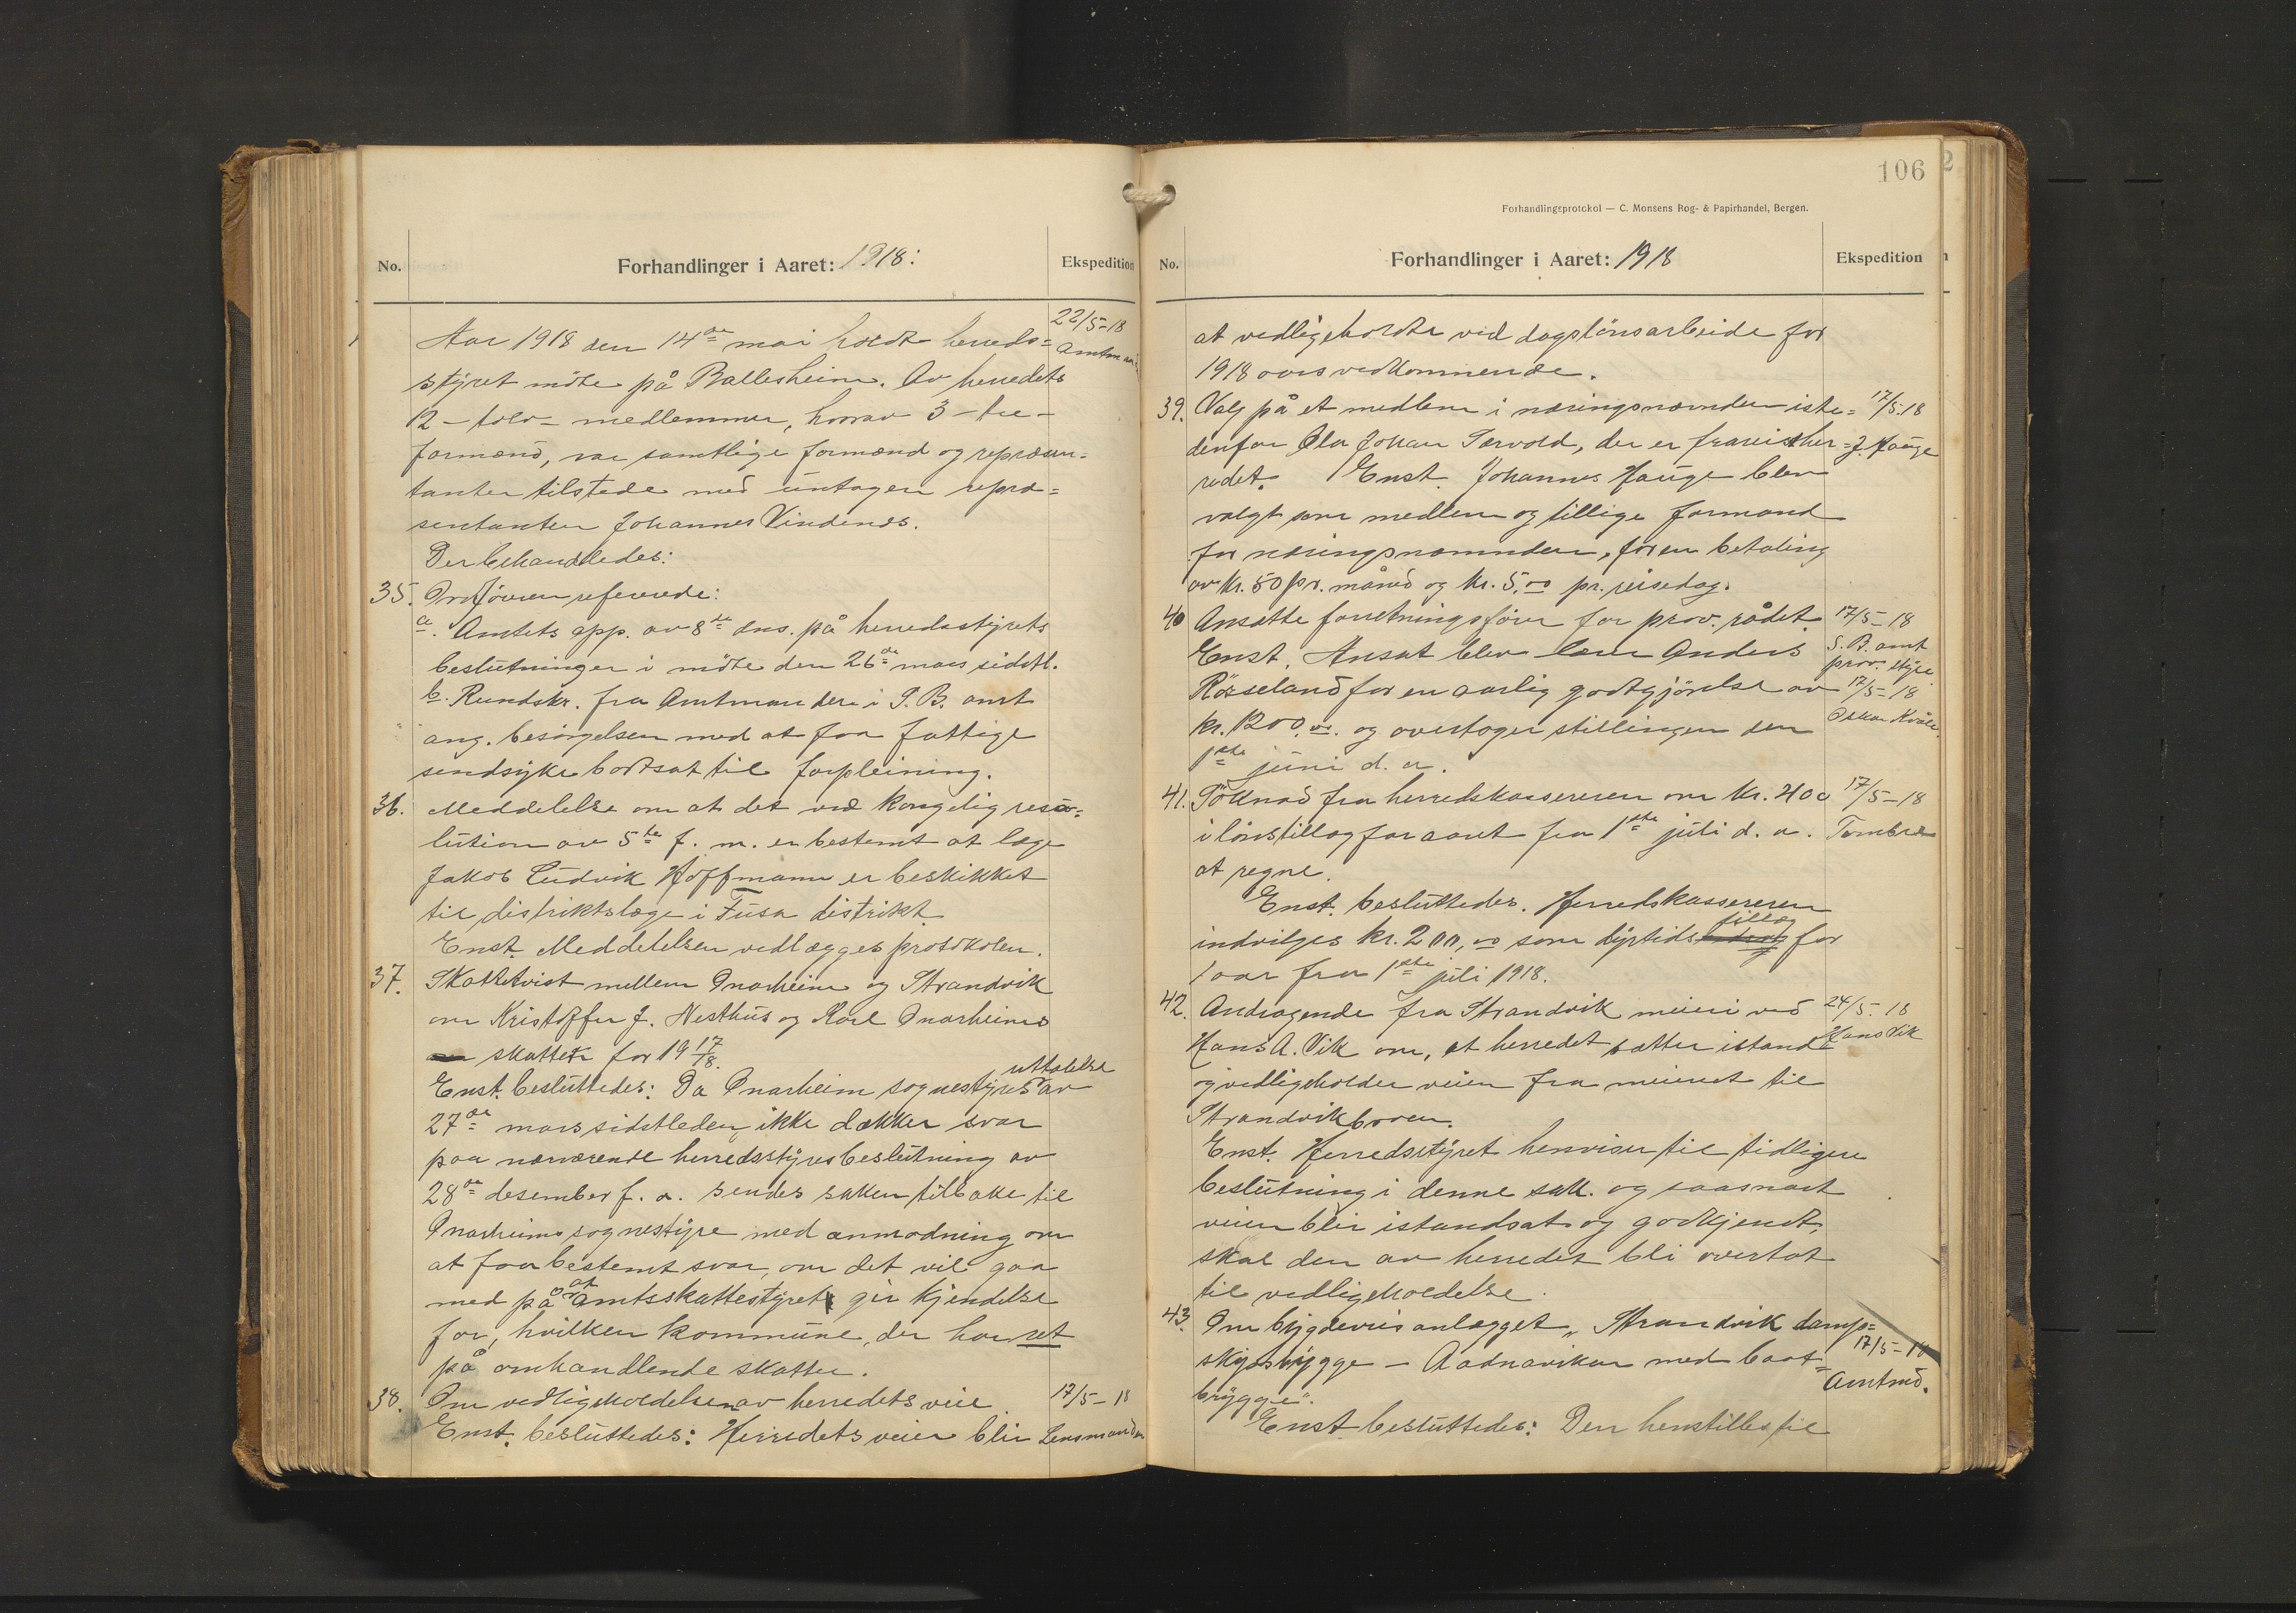 No.
Forhandlinger i Aaret: 1918:
Ekspedition
Aar 1918 den 14de mai holdt herreds=
styret möte på Ballesheim. Av herredets
12 - tolv - medlemmer, hvorav 3 - tre -
formænd, var samtlige formænd og repræsen-
tanter tilstede med untagen repræ=
sentanten Johannes Vindenes.
Der behandledes:
22/5-18
Amtmand
35. Ordføreren refererede:
a. Amtets app. av 8de dns. på herredsstyrets
beslutninger i möte den 26de mars sidstl.
b. Rundskr. fra Amtmanden i S. B. amt
ang. besörgelsen med at faa fattige
sendsyke bortsat til forpleining.
36. Meddelelse om at det ved kongelig reso-
lution av 5te f. m. er bestemt at læge
Jakob Ludvik Hoffmann er beskikket
til distriktslæge i Fusa distrikt.
Enst. Meddelelsen vedlægges protokolen.
37. Skattetvist mellem Onarheim og Strandvik
om Kristoffer J. Nesthus og Karl Onarheims
om skatter for 1917/18.
Enst. besluttedes: Da Onarheim sognestyres uttalelse av
27de mars sidstleden ikke dækker svar
paa nærværende herredsstyresbeslutning av
28de desember f. a. sendes saken tilbake til
Onarheims sognestyre med anmodning om
at faa bestemt svar, om det vil gaa
med på at Amtsskattestyret gir kjendelse
for, hvilken kommune, der har ret
på omhandlende skatter.
38. Om vedligeholdelsen av herredets veie.
Enst. besluttedes: Herredets veier blir
17/5-18
Lensmanden
106
Forhandlingsprotokol — C. Monsens Bog- & Papirhandel, Bergen.
No.
Forhandlinger i Aaret: 1918
Ekspedition
at vedligeholde ved dagslönsarbeide for
1918 aars vedkommende.
39. Valg på et medlem i næringsnævnden iste=
denfor Ola Johan Sævold, der er fraveis her=
redet. Enst. Johannes Hauge blev
valgt som medlem og tillige formand
for næringsnævnden, for en betaling
av kr. 50 pr. måned og kr. 5,00 pr. reisedag.
17/5.18
J. Hauge
40 Ansætte forretningsförer for prov. rådet.
Enst. Ansat blev lærer Anders
Röseland for en aarlig godtgjörelse av
kr. 1200,00. og overtager stillingen den
1ste juni d. a.
17/5-18
S. B. amt
prov. styre
17/5-18
Oskar Kvåle
41. Söknad fra herredskassereren om kr. 400
i lönstillæg for aaret fra 1ste juli d. a.
at regne.
Enst. besluttedes. Herredskassereren
indvilges kr. 200,00 som dyrtidstillæg for
1 aar fra 1ste juli 1918.
17/5-18
Tombre
42. Andragende fra Strandvik meieri ved
Hans A. Vik om, at herredet sætter istand
og vedligeholder veien fra meieriet til
Strandvikbroen.
Enst. Herredsstyret henviser til tidligere
beslutning i denne sak. og saasnart
veien blir istandsat og godkjendt,
skal den av herredet bli overtat
til vedligeholdelse.
24/5-18
Hans Vik
43. Om bygdeveisanlægget „Strandvik damp=
skipsbrygge - Aadnavikar med baat=
brygge".
Enst. besluttedes: Den henstilles til
17/5-18
Amtmd.